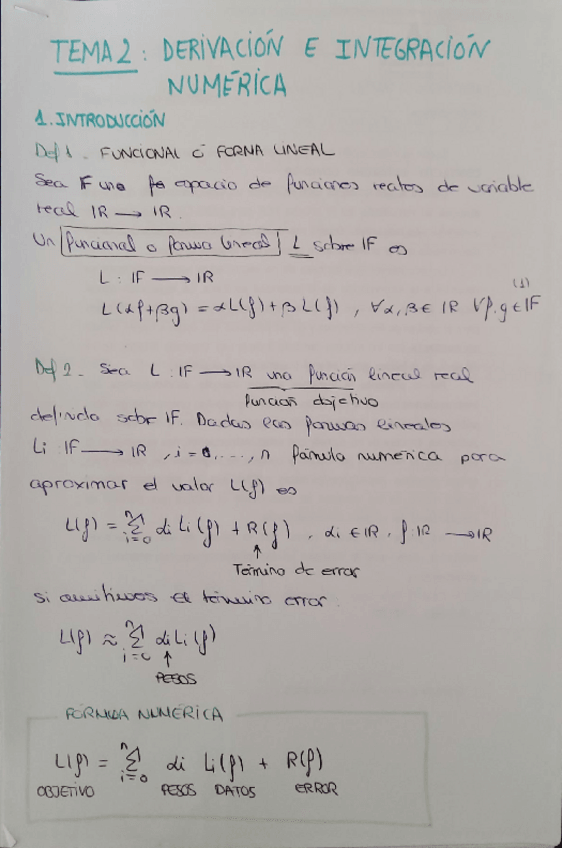 TEMA 2: DERIVACIÓN E INTEGRACIÓN
NUMÉRICA
1. INTRODUCCIÓN
Def 1. FUNCIONAL Ó FORMA LINEAL
Sea F un espacio de funciones reales de variable
real IR → IR.
Un funcional o forma lineal L sobre IF es
L : IF → IR
(1)
L(αf+βg) = αL(f) + βL(f) , ∀α,β ∈ IR ∀f,g ∈ IF
Def 2. Sea L : IF → IR una función lineal real
función objetivo
definida sobre IF. Dadas las formas lineales
Li : IF → IR , i = 0, ..., n fórmula numérica para
aproximar el valor L(f) es
L(f) = ∑_{i=0}^{n} αi Li(f) + R(f) , αi ∈ IR , f: IR → IR
Término de error
si omitimos el término error:
L(f) ≈ ∑_{i=0}^{n} αi Li(f)
PESOS
FÓRMULA NUMÉRICA
L(f) = ∑_{i=0}^{n} αi Li(f) + R(f)
OBJETIVO PESOS DATOS ERROR